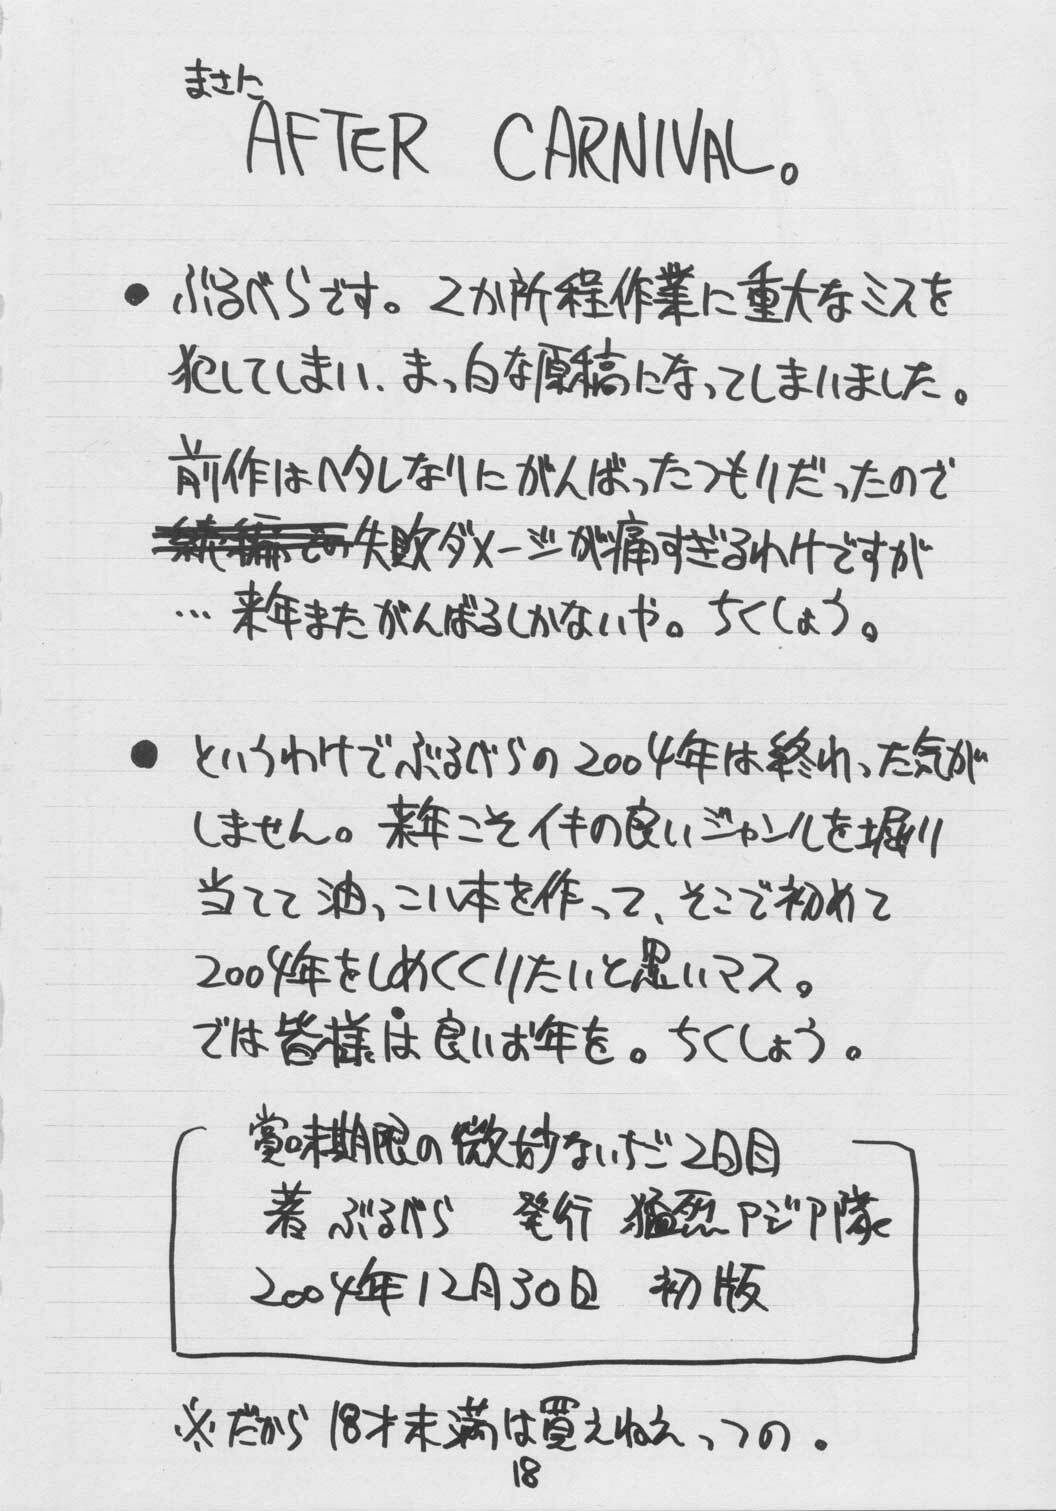 まさに
AFTER CARNIVAL。
● ぶるべらです。2か所程作業に重大なミスを
犯してしまい、まっ白な原稿になってしまいました。
前作はヘタレなりにがんばったつもりだったので
続編での失敗ダメージが痛すぎるわけですが
…来年またがんばるしかないや。ちくしょう。
● というわけでぶるべらの2004年は終わった気が
しません。来年こそイキの良いジャンルを堀り
当てて油っこい本を作って、そこで初めて
2004年をしめくくりたいと思いマス。
では皆様は良いお年を。ちくしょう。
賞味期限の微妙ないちご2日目
著 ぶるべら 発行 猛烈アジア隊
2004年12月30日 初版
※だから18才未満は買えねえっつの。
18